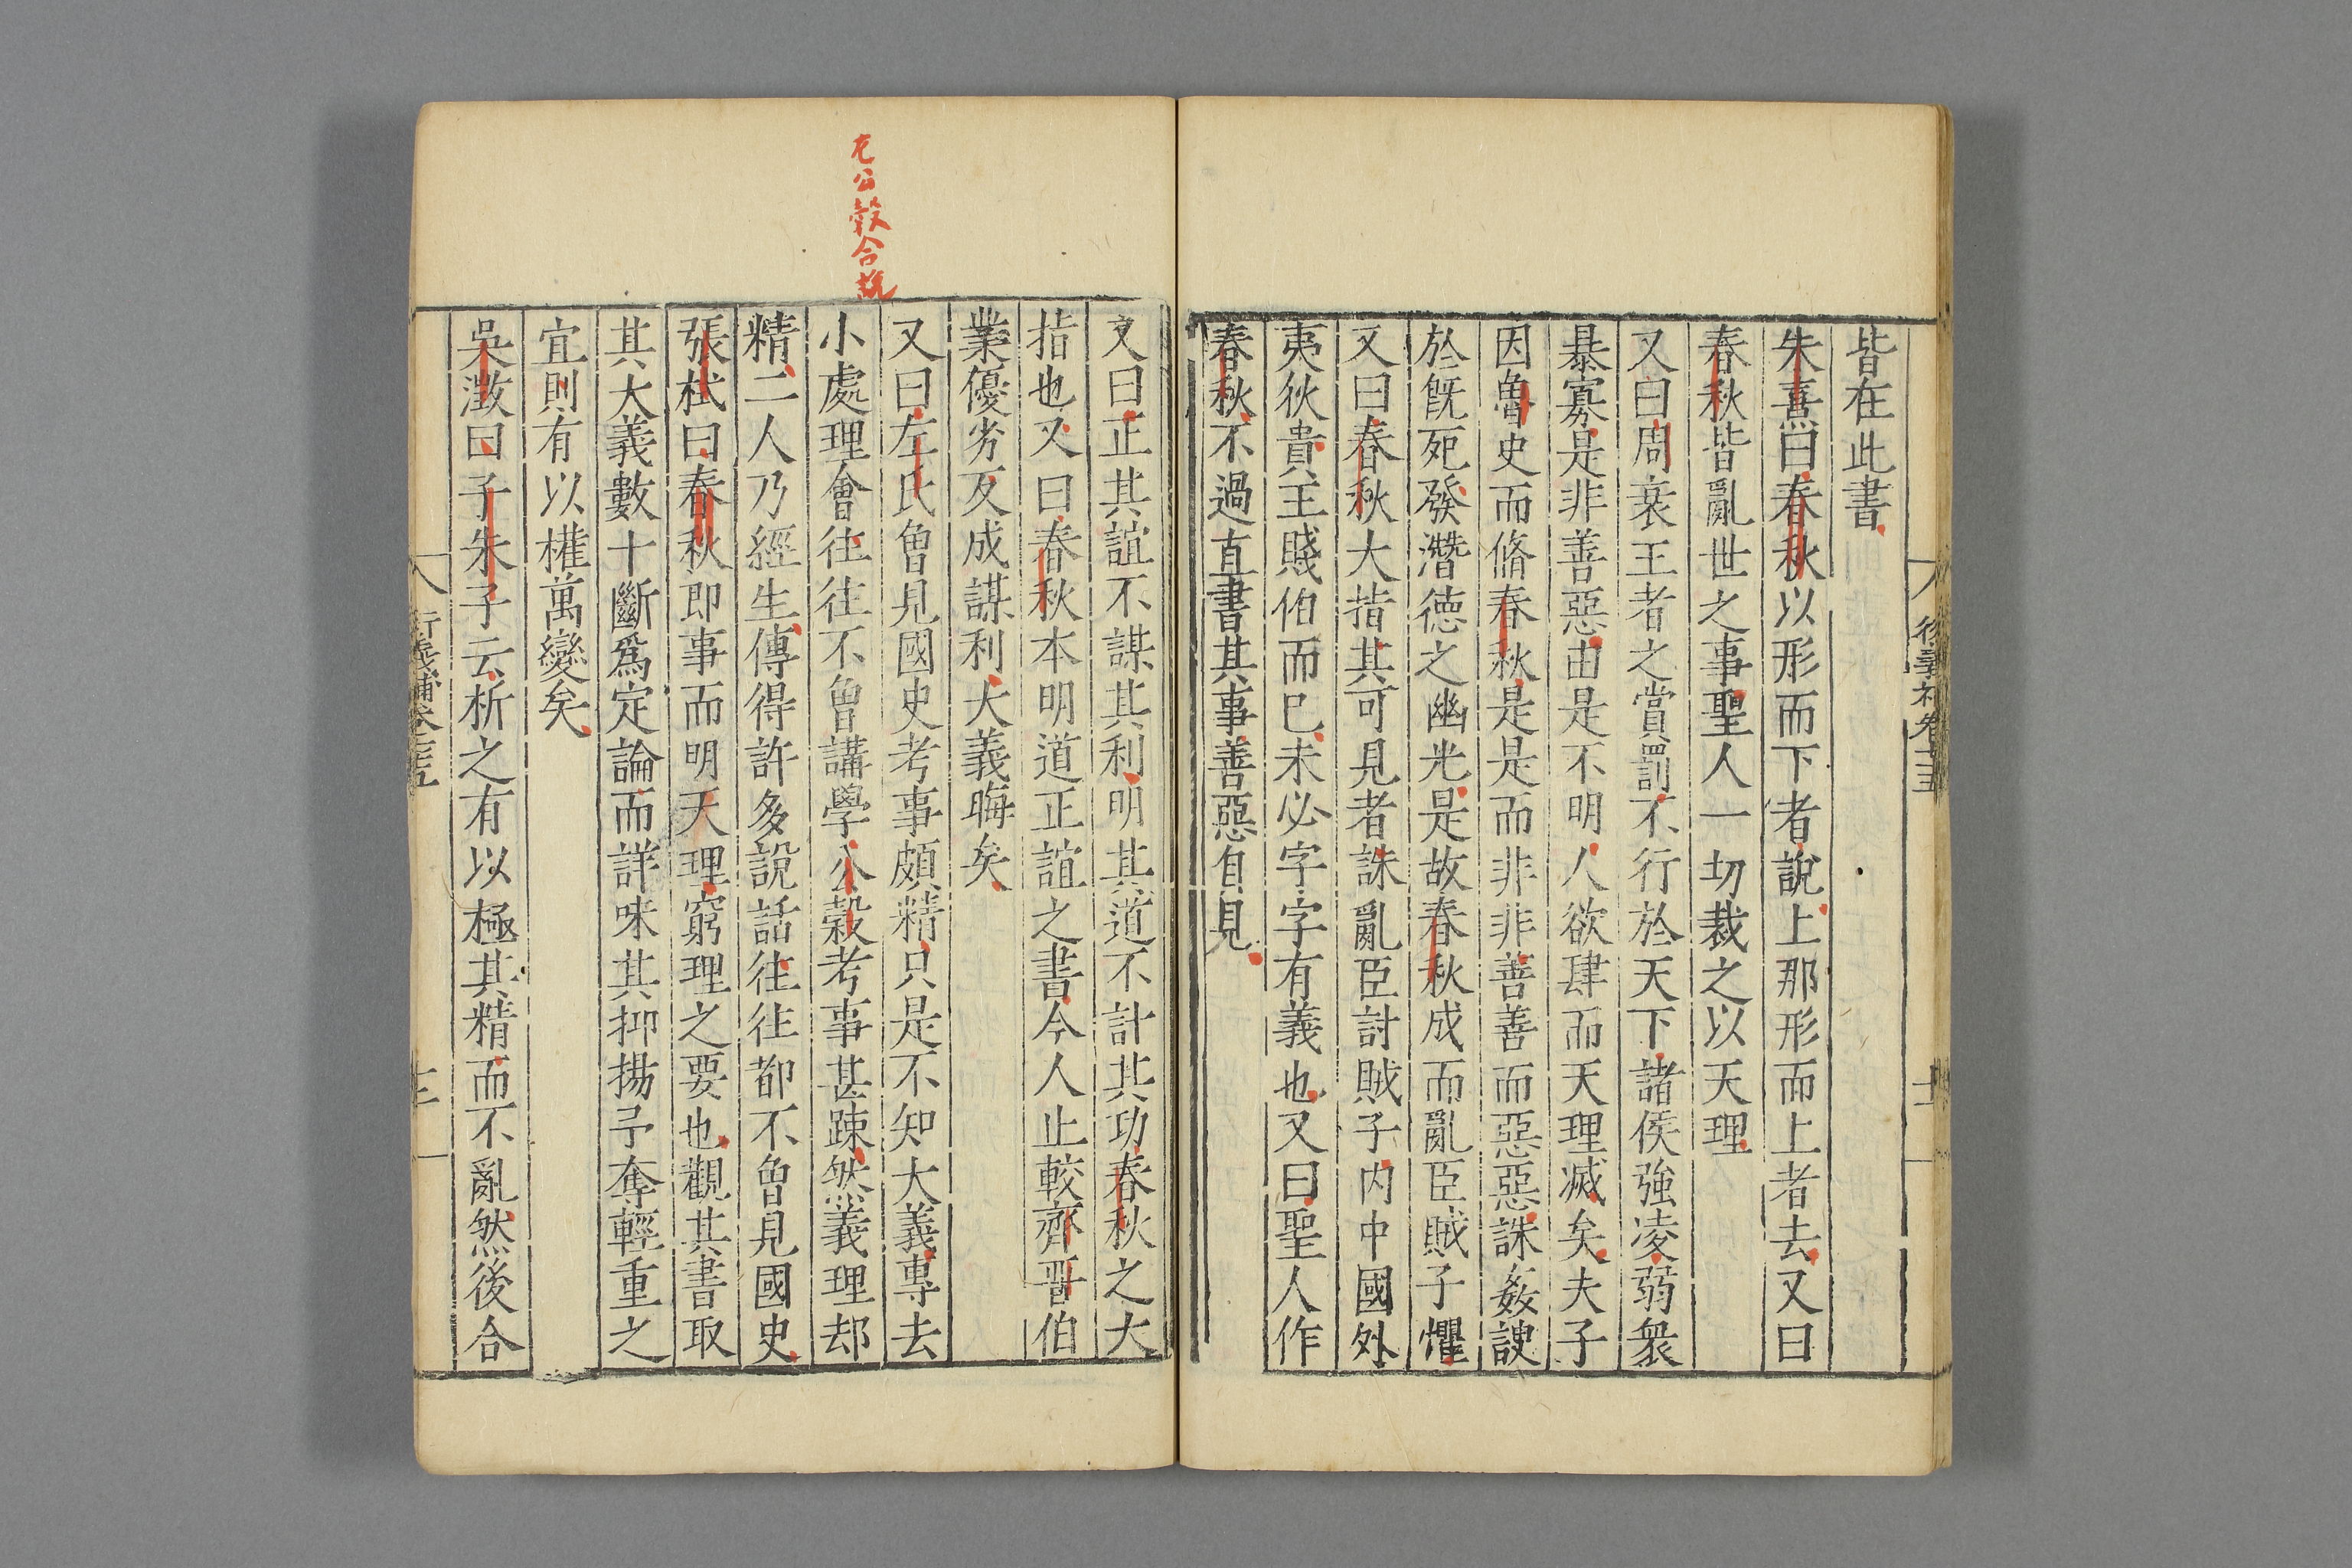 皆在此書
朱熹曰春秋以形而下者說上那形而上者去又曰
春秋皆亂世之事聖人一切裁之以天理
又曰周衰王者之賞罰不行於天下諸侯強凌弱衆
暴寡是非善惡由是不明人欲肆而天理滅矣夫子
因魯史而脩春秋是是而非非善善而惡惡誅姦諛
於旣死發潛德之幽光是故春秋成而亂臣賊子懼
又曰春秋大指其可見者誅亂臣討賊子内中國外
夷狄貴王賤伯而已未必字字有義也又曰聖人作
春秋不過直書其事善惡自見
又曰正其誼不謀其利明其道不計其功春秋之大
指也又曰春秋本明道正誼之書今人止較齊晉伯
業優劣反成謀利大義晦矣
左公榖合說
又曰左氏曾見國史考事頗精只是不知大義專去
小處理會往往不曾講學公榖考事甚踈然義理却
精二人乃經生傳得許多說話往往都不曾見國史
張栻曰春秋即事而明天理窮理之要也觀其書取
其大義數十斷爲定論而詳味其抑揚予奪輕重之
宜則有以權萬變矣
吳澂曰子朱子云析之有以極其精而不亂然後合